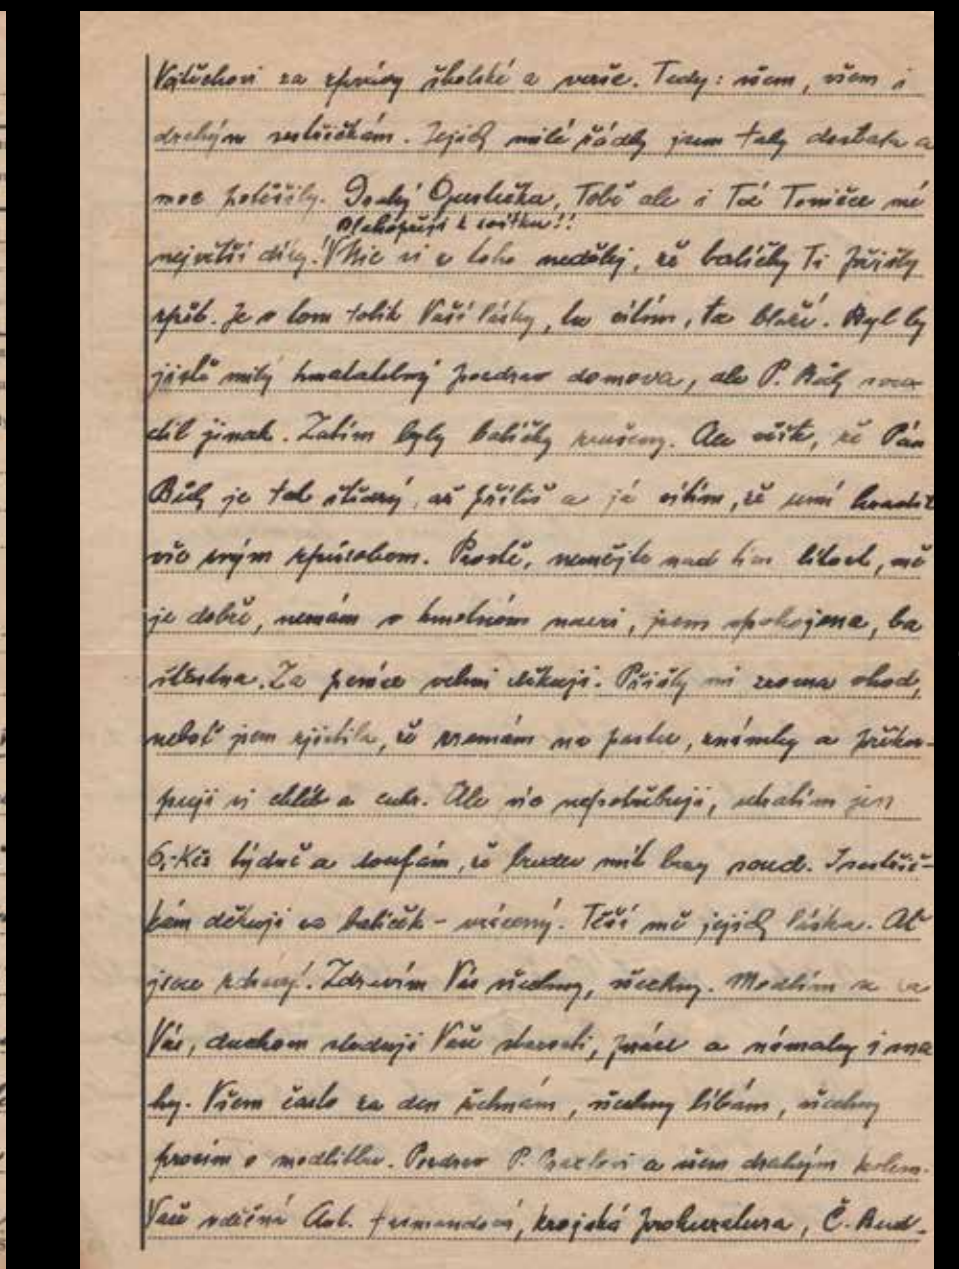 Vojtěchovi za zprávy školské a verše. Tedy: všem, všem i
drahým sestřičkám. Jejich milé řádky jsem taky dostala a
moc potěšily. Drahý Gustíčka, Tobě ale i Tvé Toničce mé
Blahopřeji k svátku!!
největší díky! Nic si z toho nedělej, že balíčky Ti přišly
zpět. Je v tom tolik Vaší lásky, tu cítím, ta blaží. Byl by
jistě milý hmatatelný pozdrav domova, ale P. Bůh
díl jinak. Zatím byly balíčky zrušeny. Ale věřte, že Pán
Bůh je tak štědrý, až příliš a já cítím, že umí hradit
vše svým způsobem. Prostě, nemějte nad tím lítost, mě
je dobře, nemám v hmotném nouzi, jsem spokojena, ba
šťastna. Za peníze velmi děkuji. Přišly mi zrovna vhod,
neboť jsem zjistila, že nemám na pastu, známky a přiku-
puji si chléb a cukr. Ale víc nepotřebuji, utratím jen
6,-Kčs týdně a doufám, že budu mít brzy soud. I sestřič-
kám děkuji za balíček - vrácený. Těší mě jejich láska. Ať
jsou zdrávy! Zdravím Vás všechny, všechny. Modlím se za
Vás, duchem sleduji Vaše starosti, práce a námahy i sna-
hy. Všem často za den žehnám, všechny líbám, všechny
prosím o modlitbu. Pozdrav P. a všem drahým kolem.
Vaše vděčná Ant. krajská prokuratura, Č. Bud-